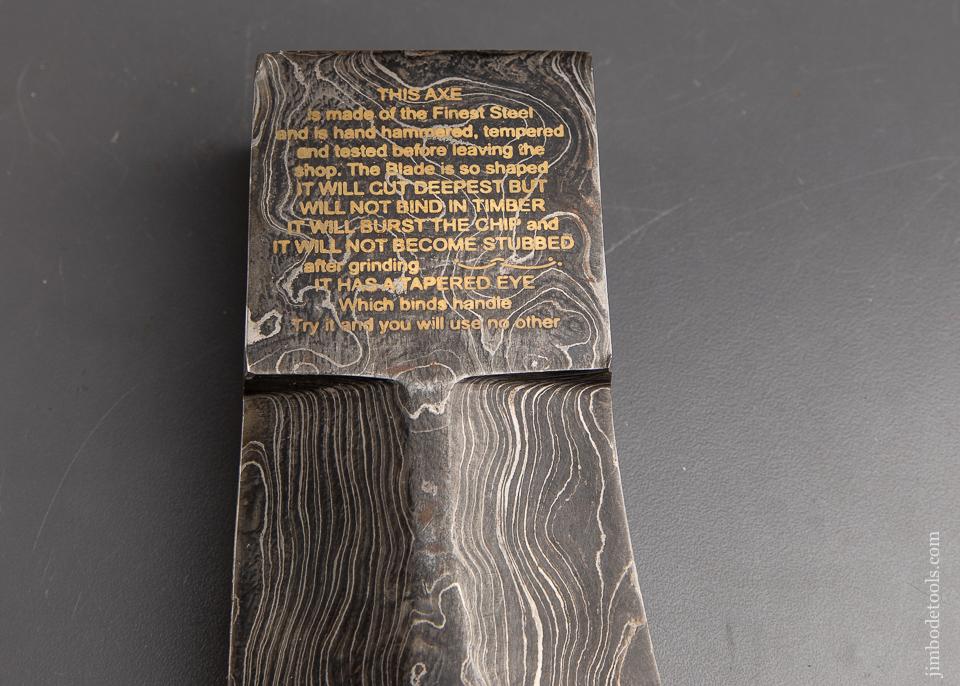 THIS AXE
is made of the Finest Steel
and is hand hammered, tempered
and tested before leaving the
shop. The Blade is so shaped
IT WILL CUT DEEPEST BUT
WILL NOT BIND IN TIMBER
IT WILL BURST THE CHIP and
IT WILL NOT BECOME STUBBED
after grinding
IT HAS A TAPERED EYE
Which binds handle
Try it and you will use no other
jimbodetools.com